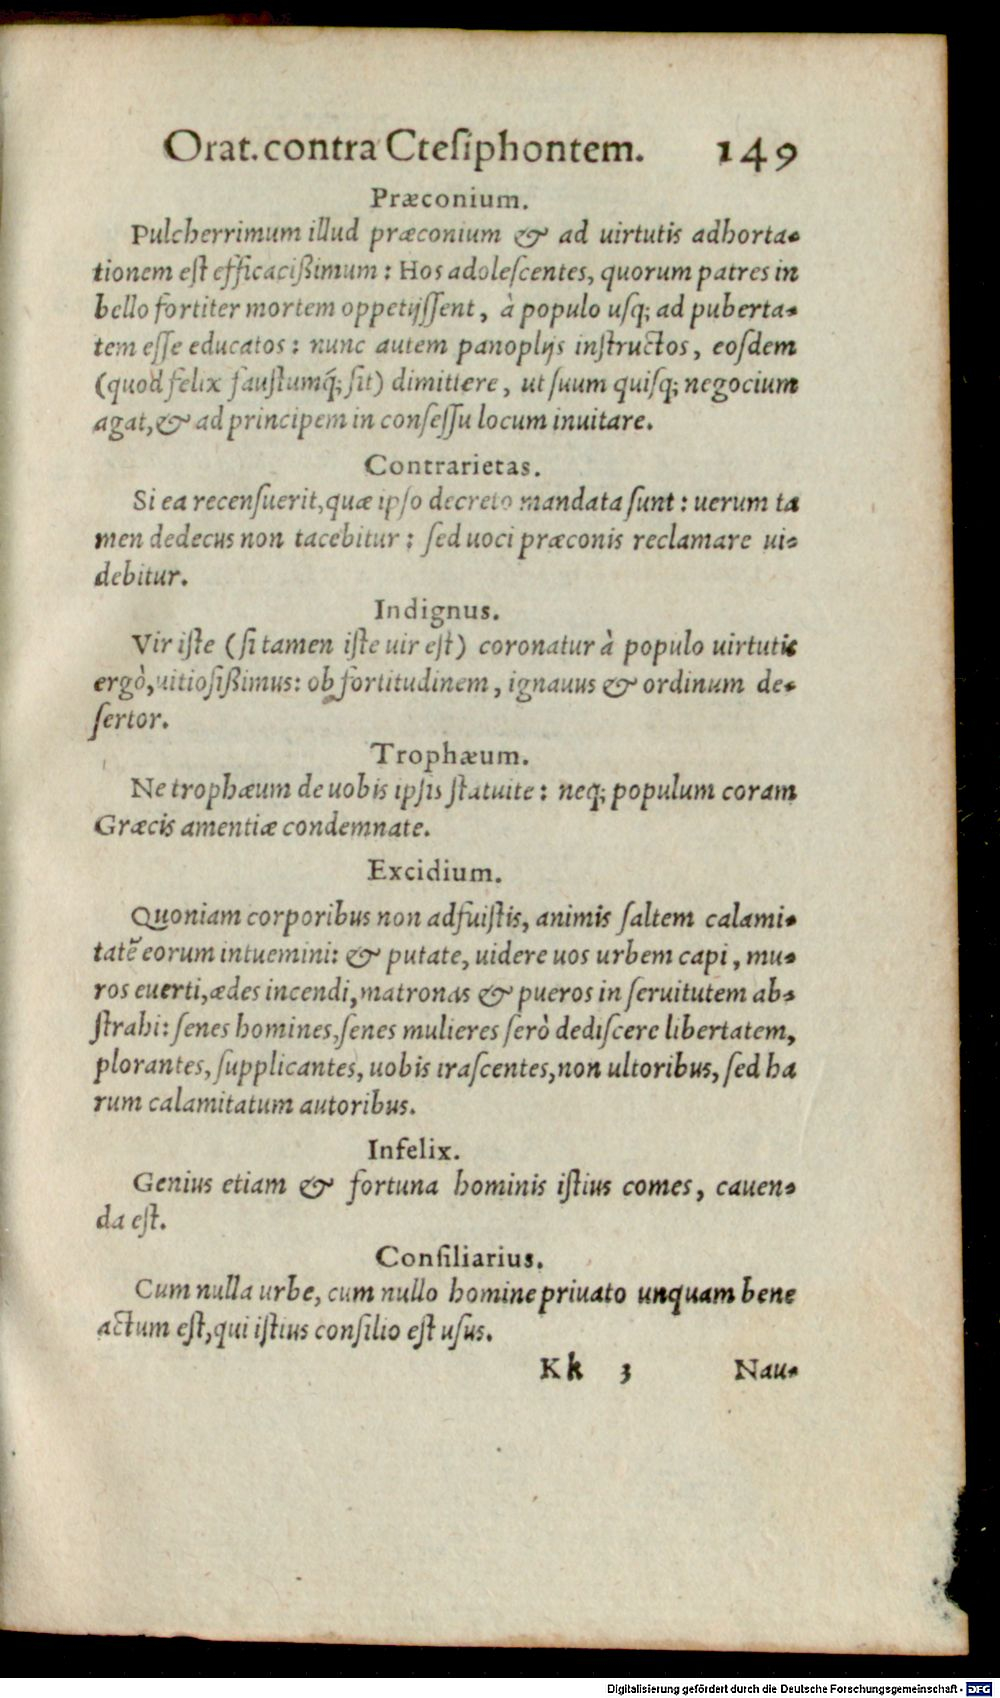 Orat. contra Cteſiphontem. 149
Præconium.
Pulcherrimum illud præconium & ad uirtutis adhorta-
tionem eſt efficacißimum: Hos adoleſcentes, quorum patres in
bello fortiter mortem oppetijſſent, à populo uſq; ad puberta-
tem eſſe educatos: nunc autem panoplijs inſtructos, eoſdem
(quod felix fauſtumq́; ſit) dimittere, ut ſuum quiſq; negocium
agat, & ad principem in conſeſſu locum inuitare.
Contrarietas.
Si ea recenſuerit, quæ ipſo decreto mandata ſunt: uerum ta
men dedecus non tacebitur: ſed uoci præconis reclamare ui-
debitur.
Indignus.
Vir iſte (ſi tamen iſte uir eſt) coronatur à populo uirtutis
ergò, uitioſißimus: ob fortitudinem, ignauus & ordinum de-
ſertor.
Trophæum.
Ne trophæum de uobis ipſis ſtatuite: neq; populum coram
Græcis amentiæ condemnate.
Excidium.
Quoniam corporibus non adfuiſtis, animis ſaltem calami-
tatẽ eorum intuemini: & putate, uidere uos urbem capi, mu-
ros euerti, ædes incendi, matronas & pueros in ſeruitutem ab-
ſtrahi: ſenes homines, ſenes mulieres ſerò dediſcere libertatem,
plorantes, ſupplicantes, uobis iraſcentes, non ultoribus, ſed ha
rum calamitatum autoribus.
Infelix.
Genius etiam & fortuna hominis iſtius comes, cauen-
da eſt.
Conſiliarius.
Cum nulla urbe, cum nullo homine priuato unquam bene
actum eſt, qui iſtius conſilio eſt uſus.
Kk 3 Nau-
Digitalisierung gefördert durch die Deutsche Forschungsgemeinschaft - DFG